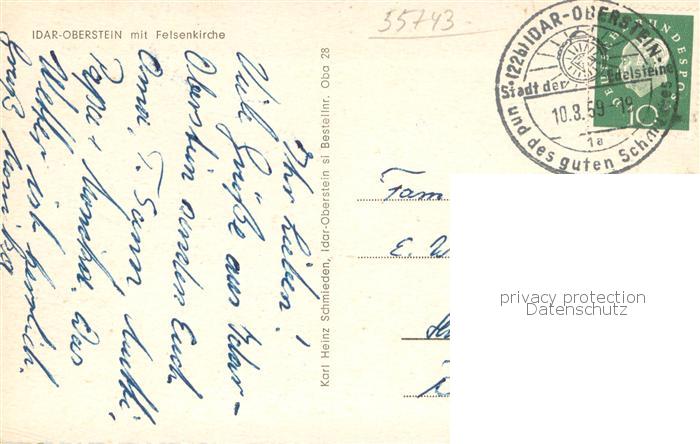 IDAR-OBERSTEIN mit Felsenkirche
35743
Ihr Lieben!
Viele Grüße aus Idar-
Oberstein senden Euch
Oma, T. Sann, Mutti,
Papa + Monika. Das
Wetter ist herrlich.
Gruß Monika
Karl Heinz Schmieden, Idar-Oberstein si Bestellnr. Oba 28
(22b) IDAR-OBERSTEIN
Stadt der Edelsteine
10.8.59-19
1a
und des guten Schmuckes
DEUTSCHE BUNDESPOST
10
Fam
E. W
privacy protection
Datenschutz